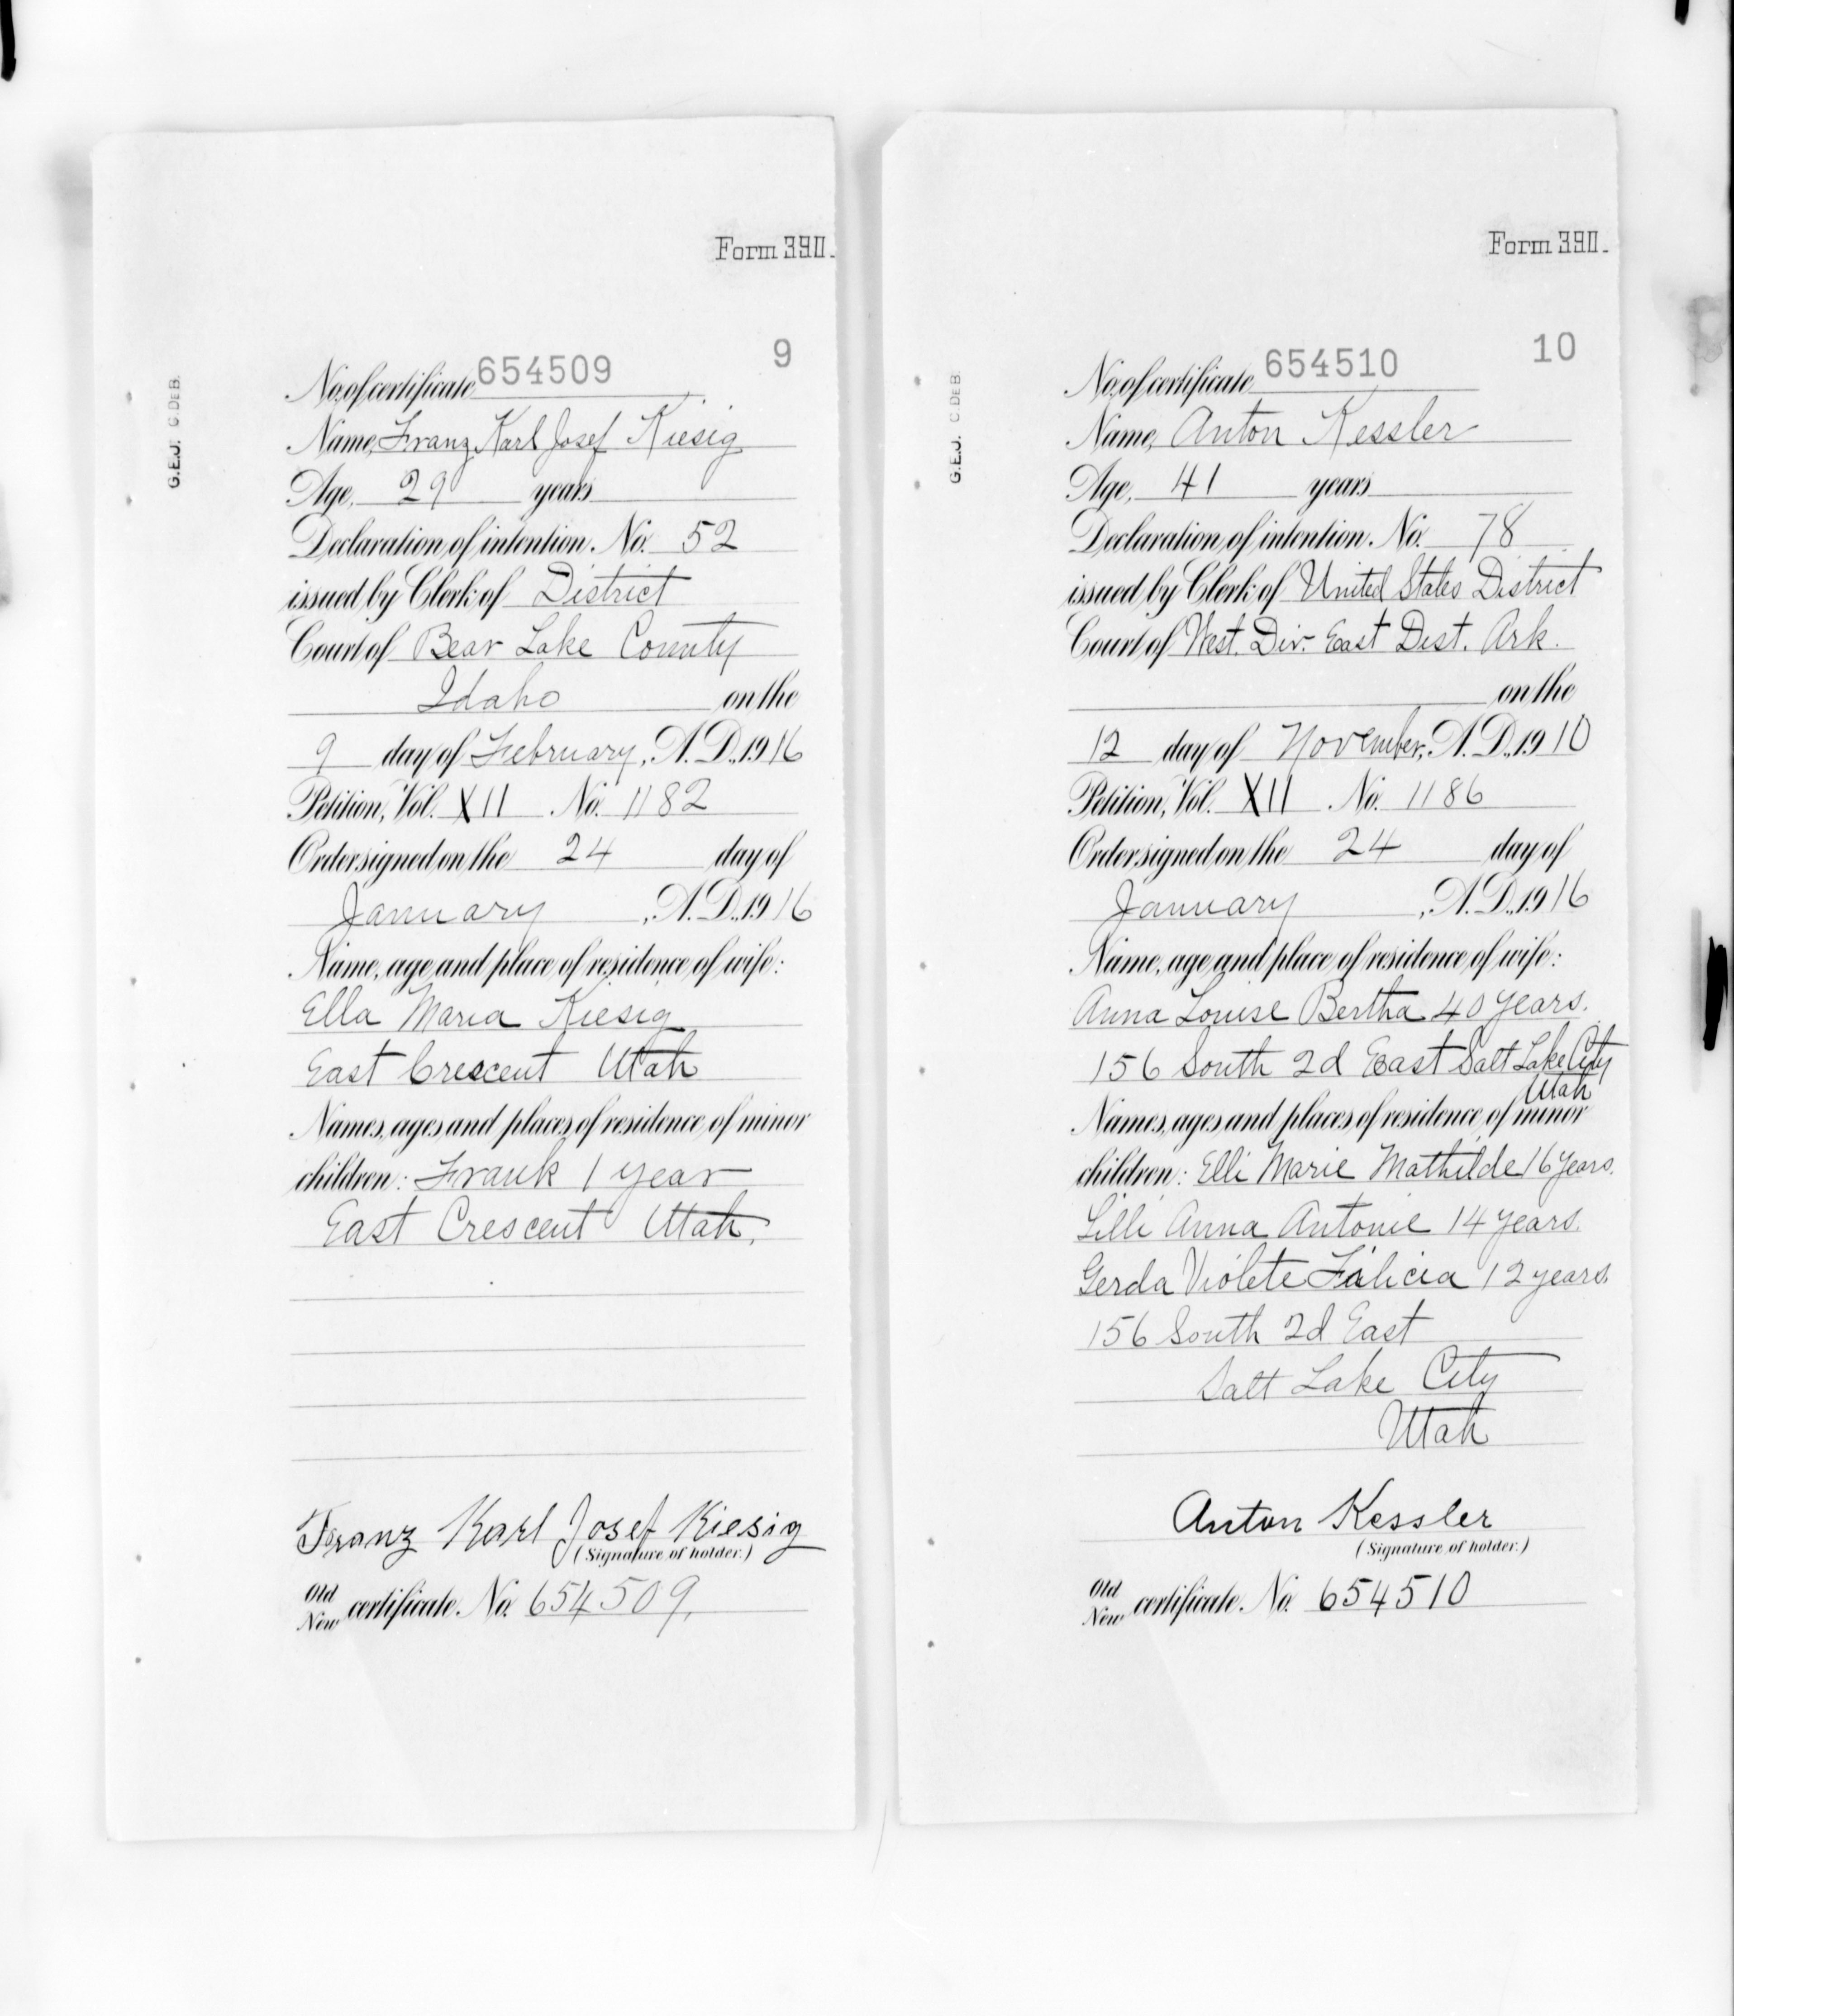 Form 390.
9
No. of certificate 654509
Name, Franz Karl Josef Kiesig
Age, 29 years
Declaration of intention. No. 52
issued by Clerk of District
Court of Bear Lake County
Idaho on the
9 day of February, A.D., 1916
Petition, Vol. XII No. 1182
Order signed on the 24 day of
January, A.D., 1916
Name, age and place of residence of wife:
Ella Maria Kiesig
East Crescent Utah
Names, ages and places of residence of minor
children: Frank 1 year
East Crescent Utah.
Franz Karl Josef Kiesig
(Signature of holder.)
Old
New certificate. No. 654509.
G.E.J. C.DEB.
Form 390.
10
No. of certificate 654510
Name, Anton Kessler
Age, 41 years
Declaration of intention. No. 78
issued by Clerk of United States District
Court of West. Div. East Dist. Ark.
on the
12 day of November, A.D., 1910
Petition, Vol. XII No. 1186
Order signed on the 24 day of
January, A.D., 1916
Name, age and place of residence of wife:
Anna Louise Bertha 40 years.
156 South 2d East Salt Lake City
Utah
Names, ages and places of residence of minor
children: Elli Marie Mathilde 16 years.
Lilli Anna Antonie 14 years.
Gerda Violete Falicia 12 years.
156 South 2d East
Salt Lake City
Utah
Anton Kessler
(Signature of holder.)
Old
New certificate. No. 654510
G.E.J. C.DEB.